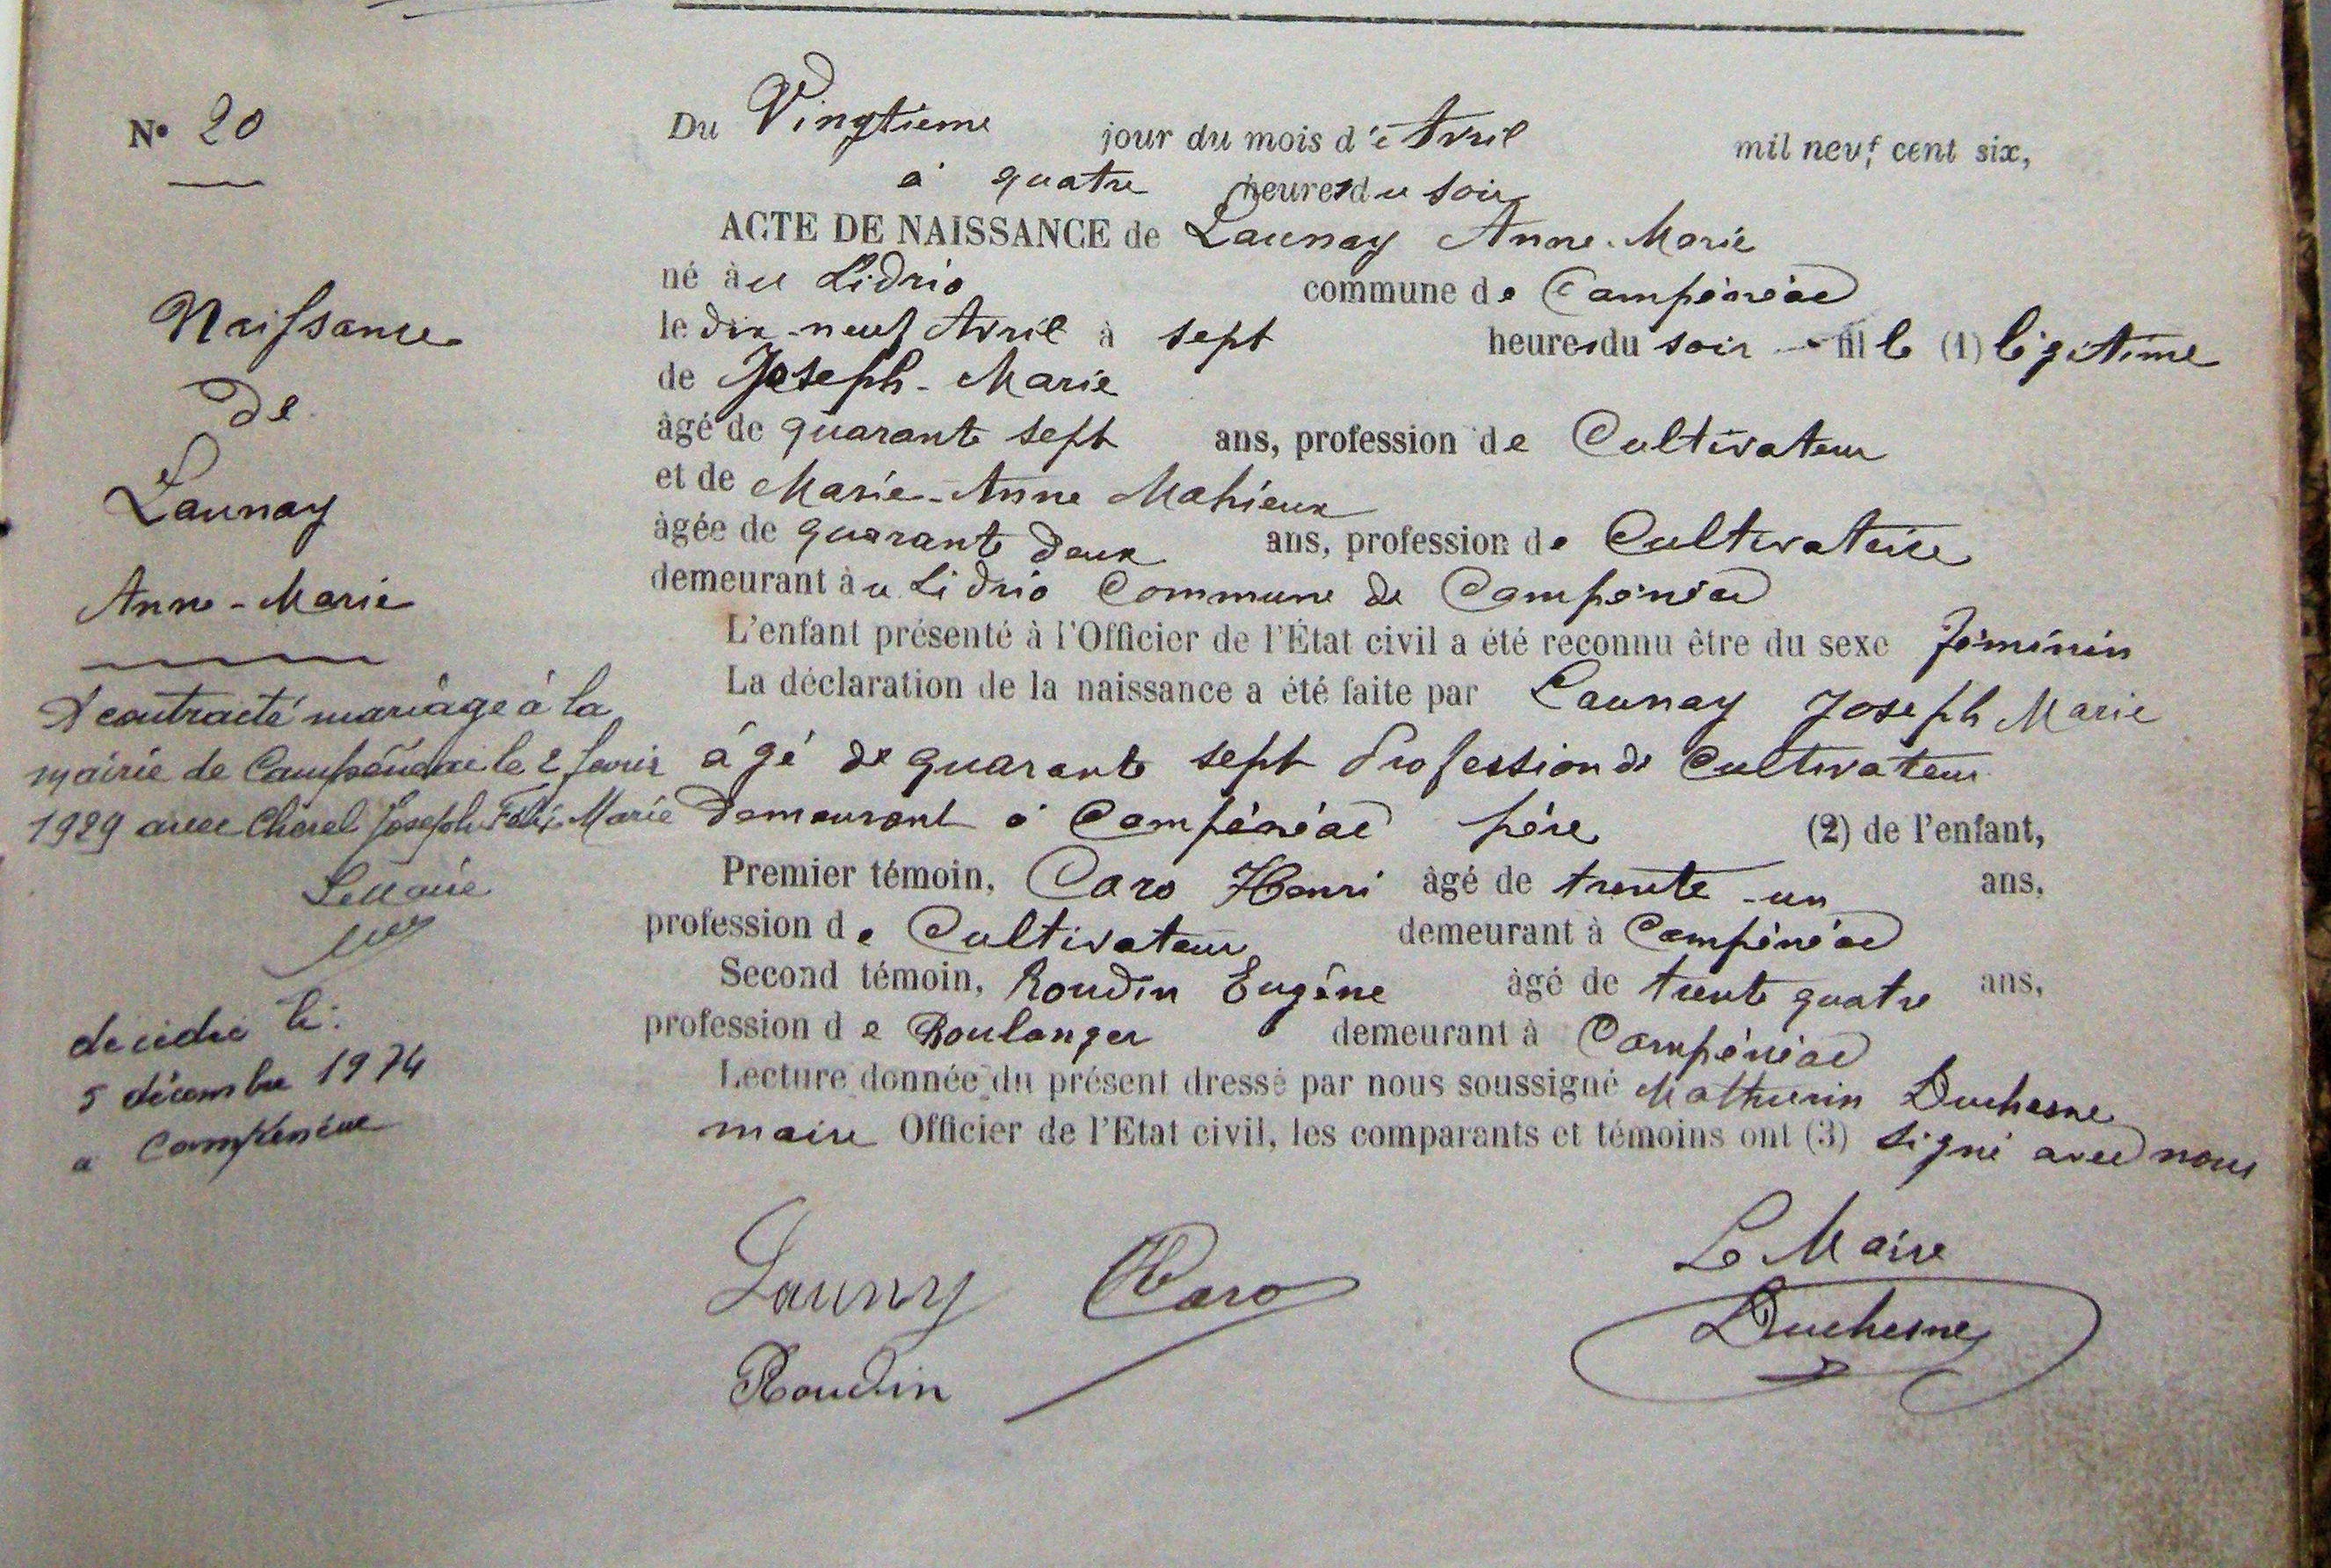 N° 20
Naissance
de
Launay
Anne-Marie
A contracté mariage à la
mairie de Campénéac le 2 fevrier
1929 avec Chérel Joseph Félix Marie
Le Maire
décédée le
5 décembre 1974
a Campénéac
Du Vingtieme jour du mois d'Avril mil neuf cent six,
à quatre heures du soir
ACTE DE NAISSANCE de Launay Anne-Marie
né au Lidrio commune de Campénéac
le dix-neuf Avril à sept heures du soir fille (1) légitime
de Joseph-Marie
âgé de quarante sept ans, profession de Cultivateur
et de Marie-Anne Mahieux
âgée de quarante deux ans, profession de Cultivatrice
demeurant au Lidrio Commune de Campénéac
L'enfant présenté à l'Officier de l'État civil a été reconnu être du sexe féminin
La déclaration de la naissance a été faite par Launay Joseph Marie
âgé de quarante sept Profession de Cultivateur
demeurant à Campénéac père (2) de l'enfant,
Premier témoin, Caro Henri âgé de trente-un ans,
profession de Cultivateur demeurant à Campénéac
Second témoin, Roudin Eugène âgé de trente quatre ans,
profession de Boulanger demeurant à Campénéac
Lecture donnée du présent dressé par nous soussigné Mathurin Duchesne
maire Officier de l'Etat civil, les comparants et témoins ont (3) signé avec nous
Launay Caro
Le Maire
Roudin
Duchesne